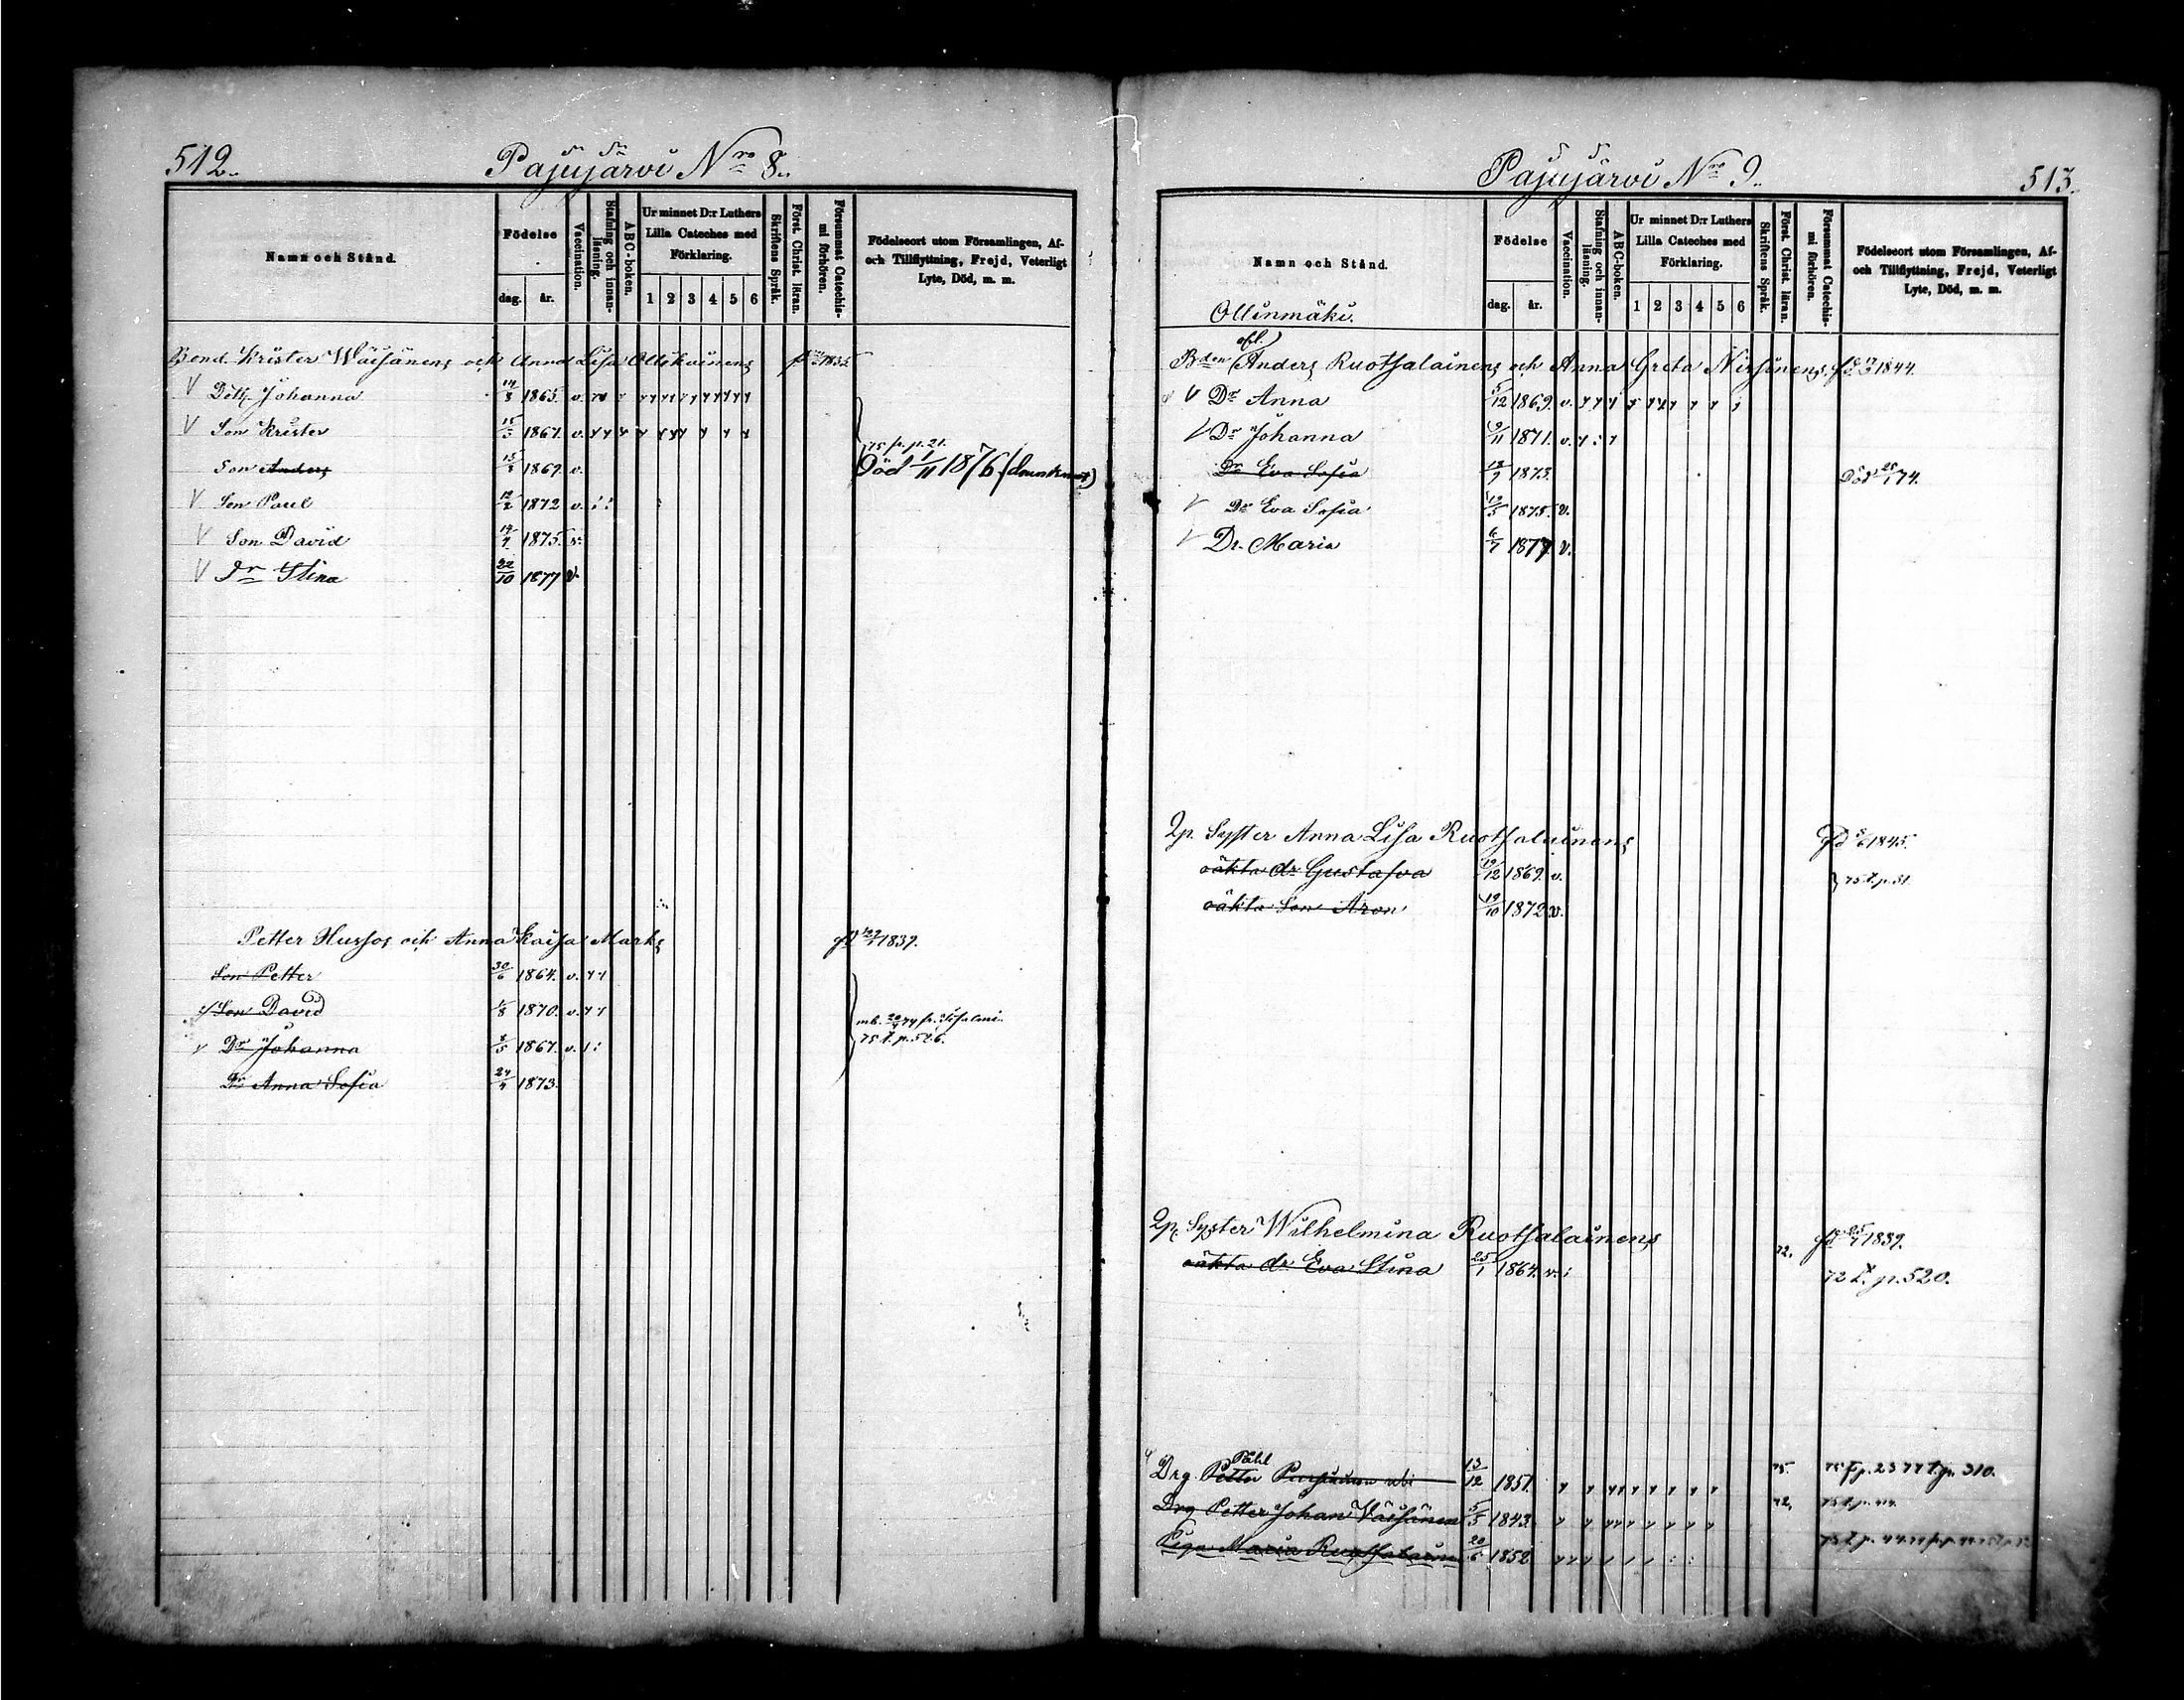 512.
Pajujärvi Nro 8.
Namn och Stånd.
Födelse
dag. år.
Vaccination.
Stafning och innanläsning.
ABC-boken.
Ur minnet D:r Luthers Lilla Cateches med Förklaring.
1 2 3 4 5 6
Skriftens Språk.
Först. Christ. läran.
Försummat Catechismi förhören.
Födelseort utom Församlingen, Af- och Tillflyttning, Frejd, Veterligt Lyte, Död, m. m.
Bond. Krister Wäisänens och Anna Lisa Ollikainens 1835
V Dott. Johanna 14/8 1865. v.
V Son Krister 15/3 1867. v.
75 fr. p. 21.
Son Anders 15/8 1869 v. Död 1/11 1876
V Son Paul 12/2 1872 v.
V Son David 14/7 1875. v.
V Dr Stina 22/10 1877 v.
Petter Hussos och Anna Kaisa Marks 1839.
Son Petter 30/6 1864. v.
Son David 1/8 1870. v.
Dr Johanna 8/5 1867. v.
75 t. p. 526.
Dr Anna Sofia 24/4 1873.
Pajujärvi Nro 9.
513.
Namn och Stånd.
Födelse
dag. år.
Vaccination.
Stafning och innanläsning.
ABC-boken.
Ur minnet D:r Luthers Lilla Cateches med Förklaring.
1 2 3 4 5 6
Skriftens Språk.
Först. Christ. läran.
Försummat Catechismi förhören.
Födelseort utom Församlingen, Af- och Tillflyttning, Frejd, Veterligt Lyte, Död, m. m.
Ollinmäki.
afl.
Bden Anders Ruotsalainens och Anna Greta Nissinens 1844.
V Dr Anna 5/12 1869. v.
V Dr Johanna 9/11 1871. v.
Dr Eva Sofia 18/9 1873. Död 25/1 74.
V Dr Eva Sofia 12/5 1875. v.
V Dr. Maria 6/7 1877 v.
Qp. Syster Anna Lisa Ruotsalainens fd 5/6 1845.
oäkta dr Gustafva 19/12 1869. v. 75 t. p. 51
oäkta Son Aron 19/10 1872 v.
Qp. Syster Wilhelmina Ruotsalainens fd 25/1 1839.
oäkta dr Eva Stina 25/1 1864. v. 72. 72 t. p. 520.
Påhl
Drg. Petter 13/12 1851. 75. 75 f. p. 23 77 t. p. 310.
Drg Petter Johan Väisänen 5/5 1843. 72.
Piga Maria Ruotsalainen 20/6 1852